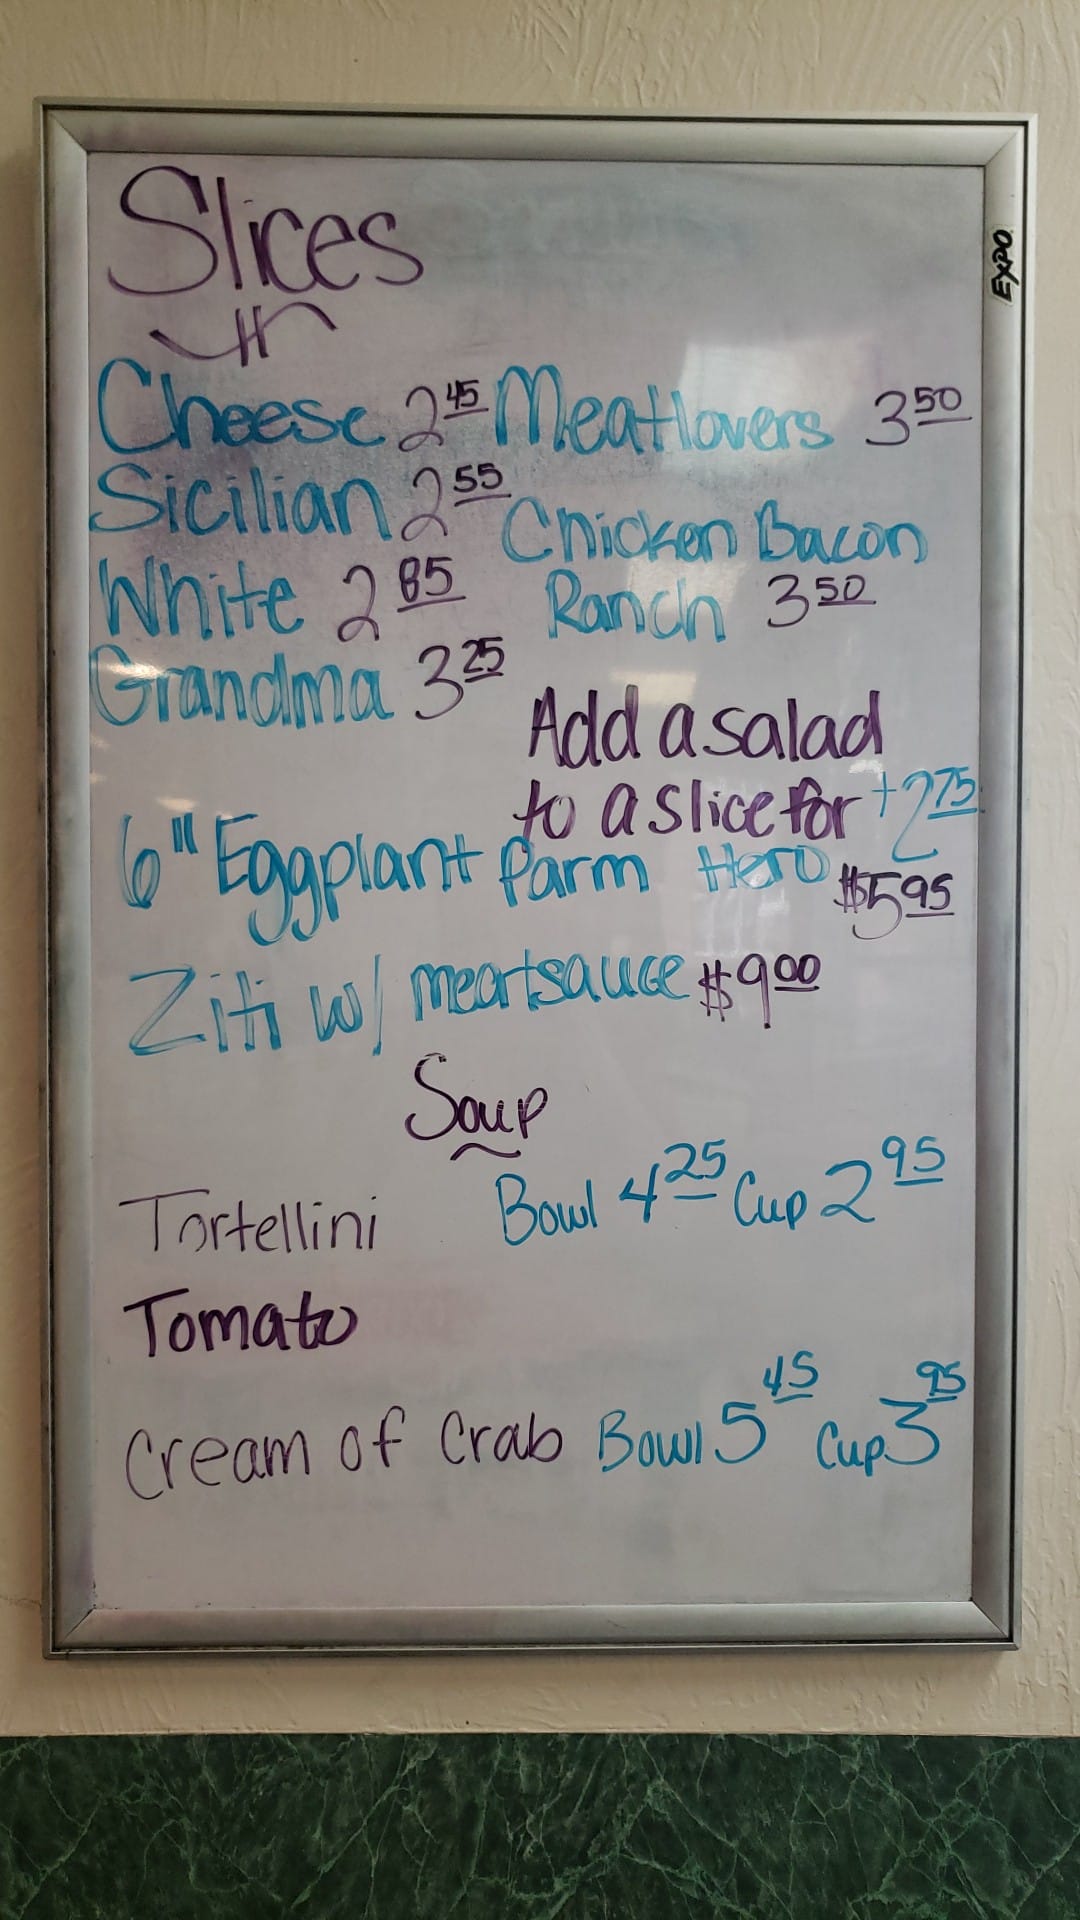 Slices
Cheese 2.45 Meatlovers 3.50
Sicilian 2.55
Chicken Bacon
White 2.85
Ranch 3.50
Grandma 3.25
Add a salad
to a slice for +2.75
6" Eggplant Parm Hero $5.95
Ziti w/ meatsauce $9.00
Soup
Tortellini Bowl 4.25 Cup 2.95
Tomato
Cream of Crab Bowl 5.45 Cup 3.95
EXPO